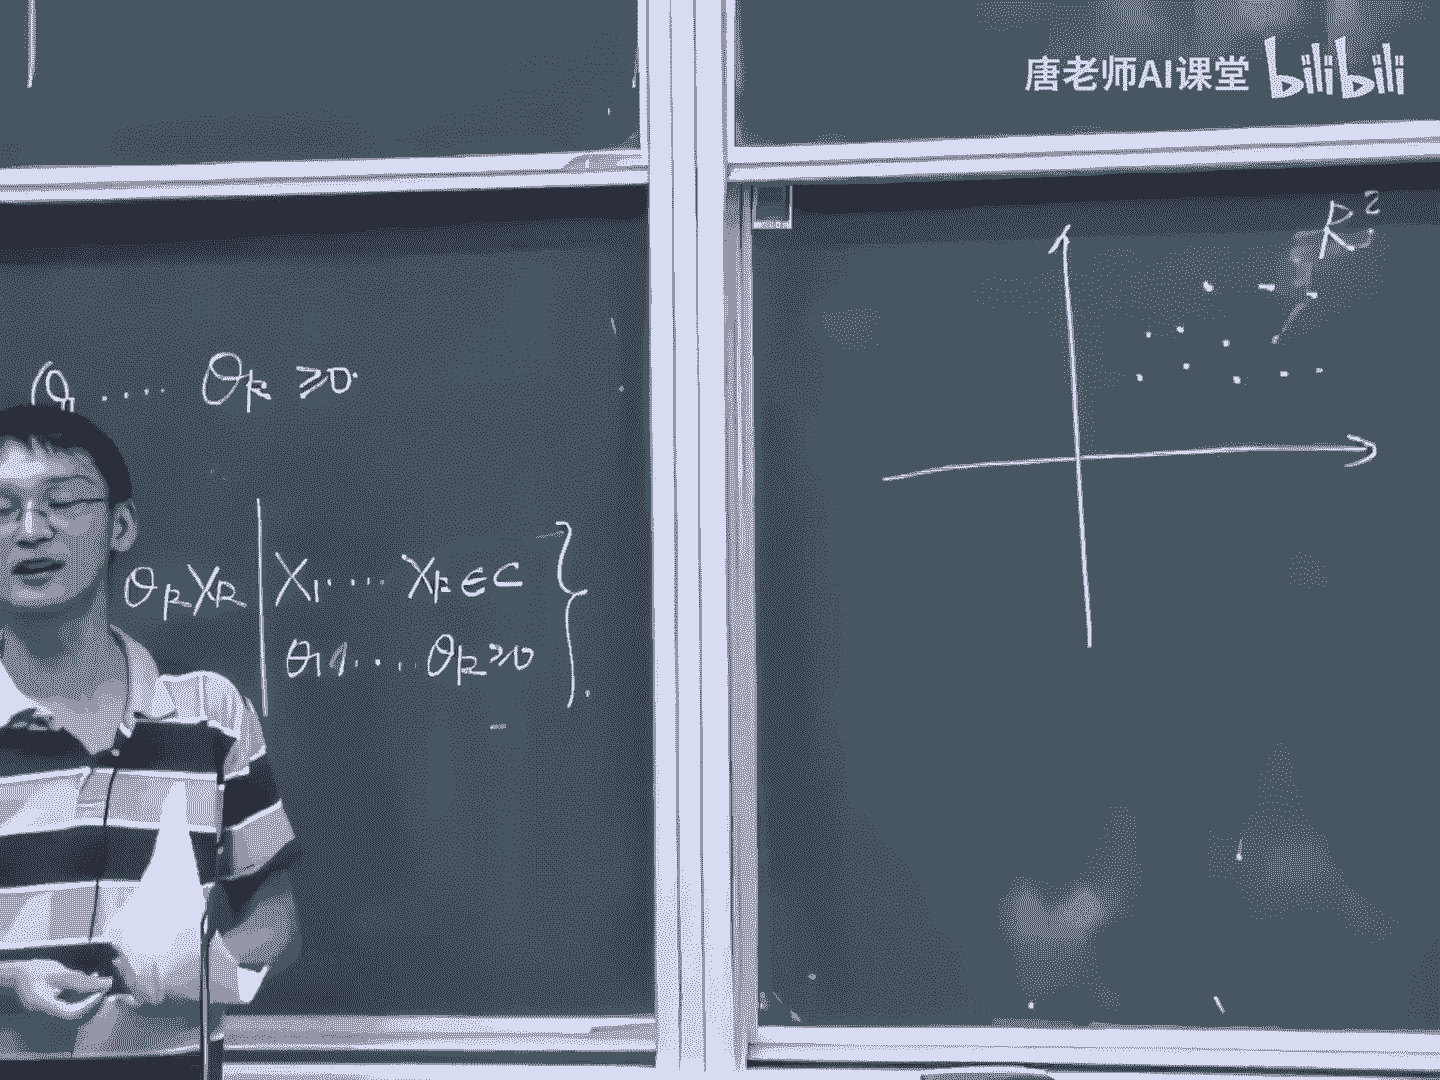 唐老师AI课堂 bilibili
θ₁ ‥‥ θₖ ≥0.
θₖXₖ | X₁ ‥‥ Xₖ ∈ C }.
θ₁ ‥‥ θₖ ≥0
R²